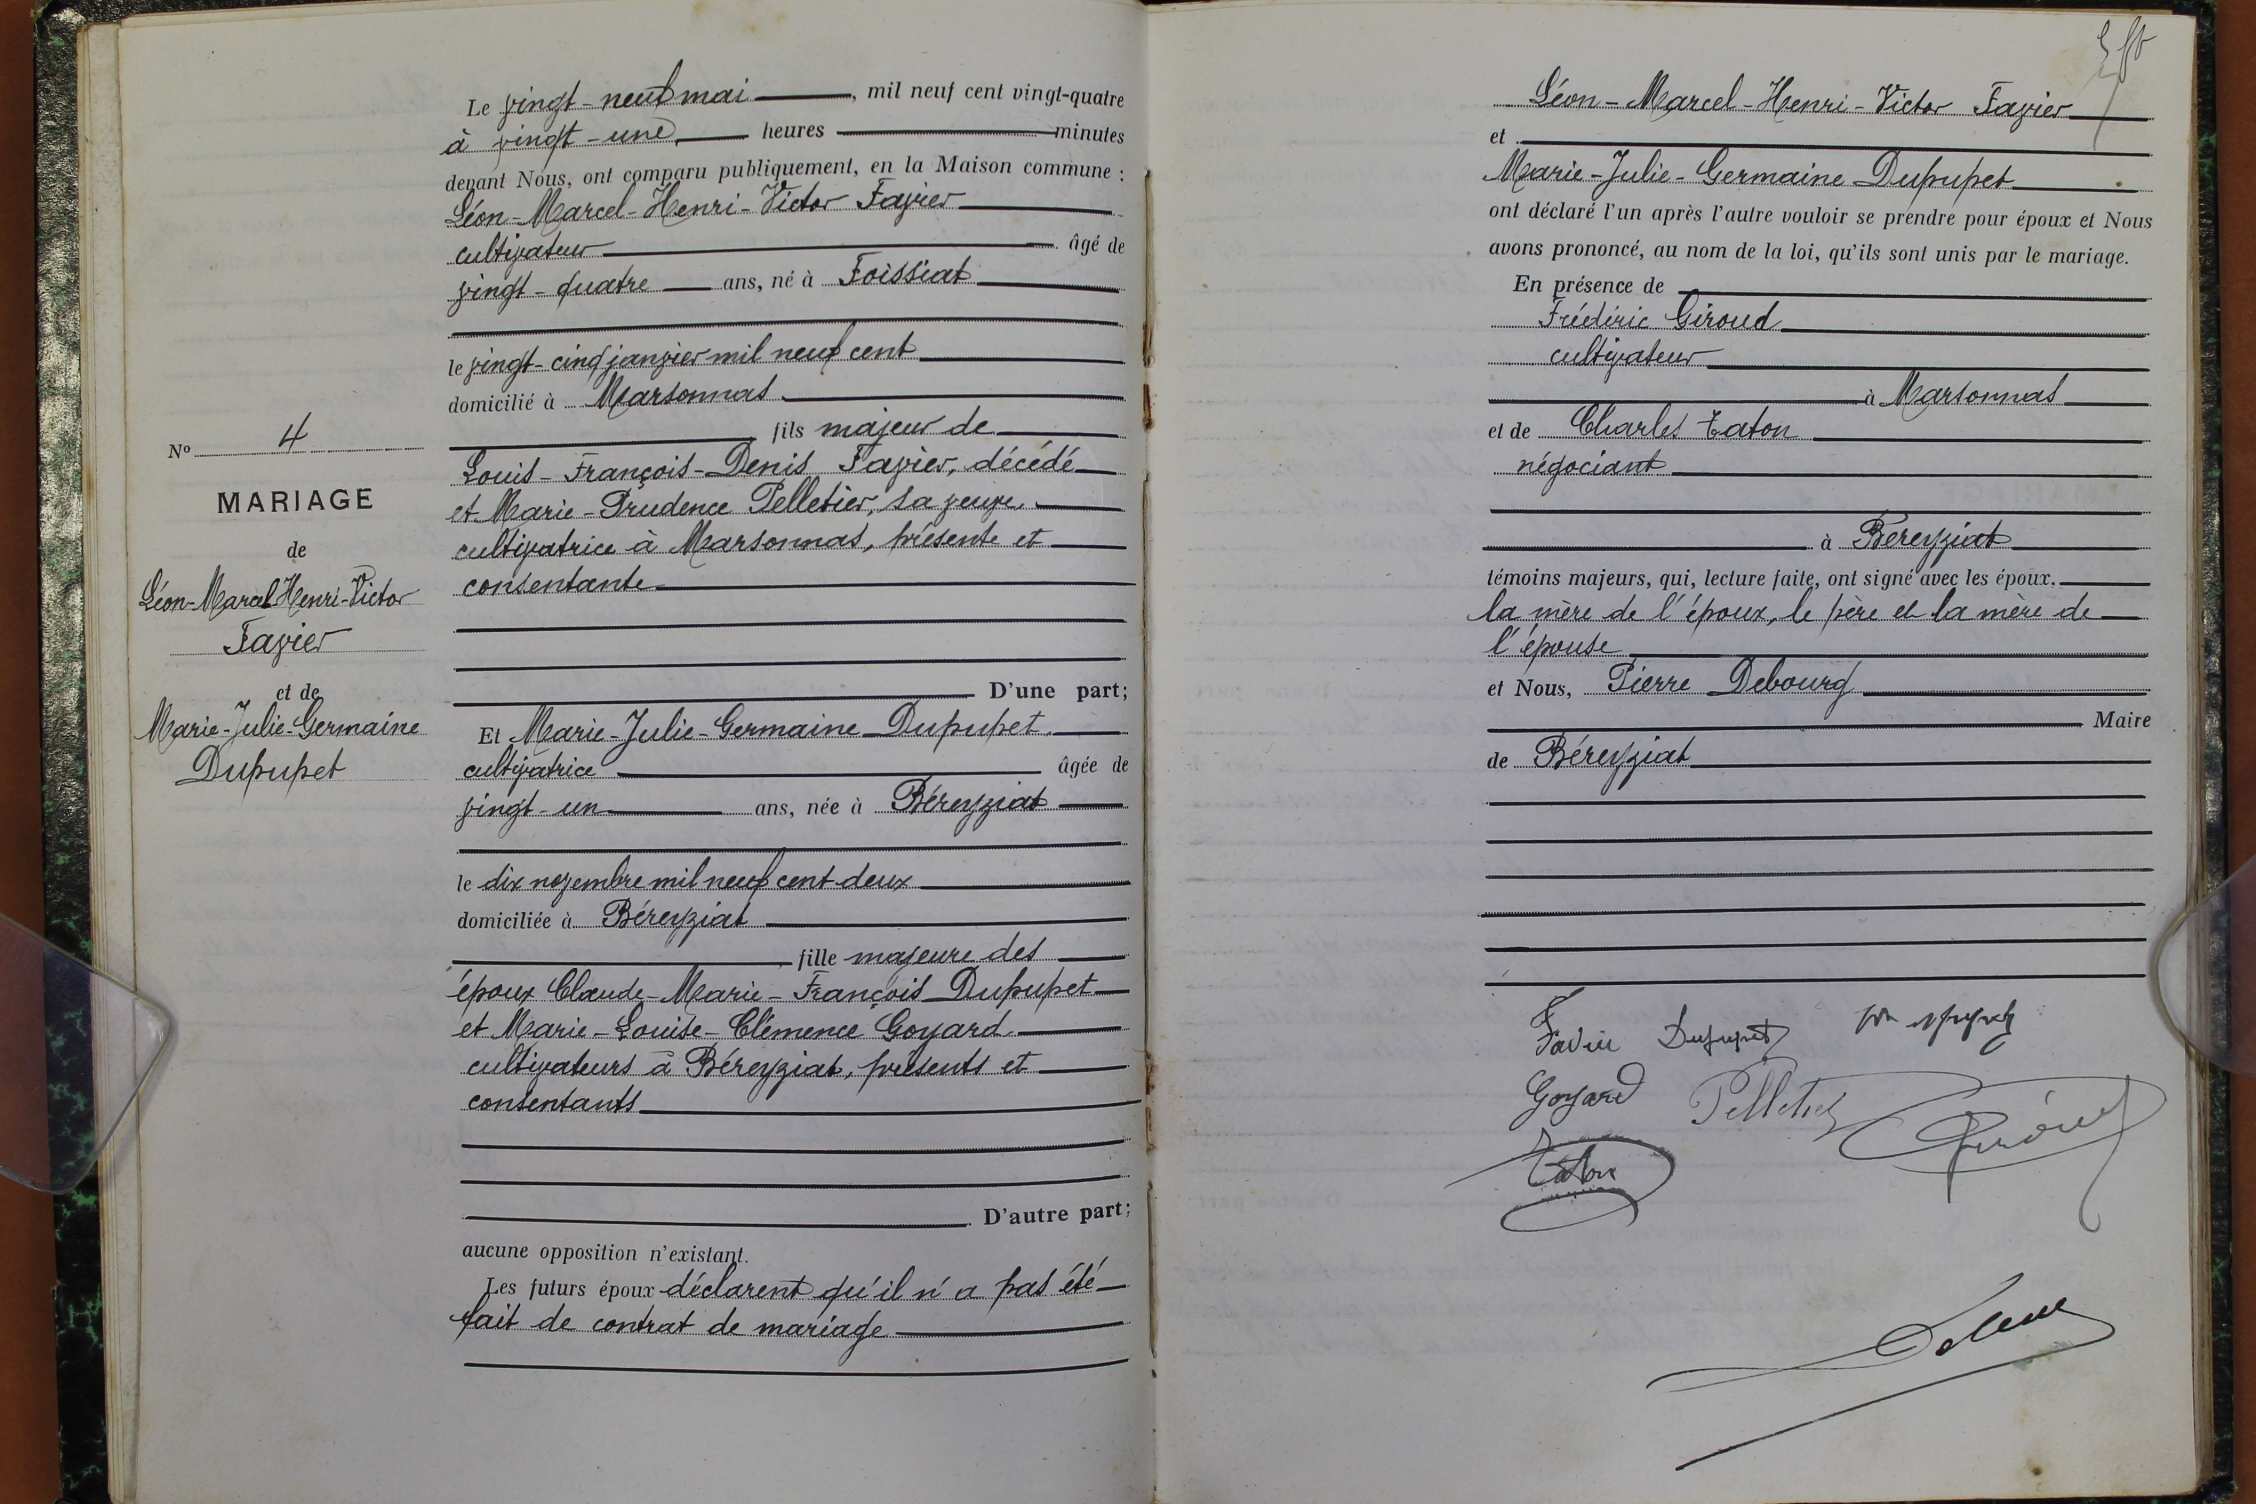 Le vingt-neuf mai, mil neuf cent vingt-quatre
à vingt-une heures minutes
devant Nous, ont comparu publiquement, en la Maison commune :
Léon-Marcel-Henri-Victor Favier
cultivateur âgé de
vingt-quatre ans, né à Foissiat
le vingt-cinq janvier mil neuf cent
domicilié à Marsonnas
fils majeur de
Louis-François-Denis Favier, décédé
et Marie-Prudence Pelletier, sa veuve,
cultivatrice à Marsonnas, présente et
consentante
D'une part;
Et Marie-Julie-Germaine Dupupet,
cultivatrice âgée de
vingt-un ans, née à Béreyziat
le dix novembre mil neuf cent deux
domiciliée à Béreyziat
fille majeure des
époux Claude-Marie-François Dupupet
et Marie-Louise-Clémence Goyard
cultivateurs à Béreyziat, présents et
consentants
D'autre part;
aucune opposition n'existant.
Les futurs époux déclarent qu'il n'a pas été
fait de contrat de mariage
No 4
MARIAGE
de
Léon-Marcel-Henri-Victor
Favier
et de
Marie-Julie-Germaine
Dupupet
Léon-Marcel-Henri-Victor Favier
et
Marie-Julie-Germaine Dupupet
ont déclaré l'un après l'autre vouloir se prendre pour époux et Nous
avons prononcé, au nom de la loi, qu'ils sont unis par le mariage.
En présence de
Frédéric Giroud
cultivateur
à Marsonnas
et de Charles Taton
négociant
à Béreyziat
témoins majeurs, qui, lecture faite, ont signé avec les époux.
la mère de l'époux, le père et la mère de
l'épouse
et Nous, Pierre Debourg
Maire
de Béreyziat
Favier Dupupet
Goyard Pelletier Giroud
Taton